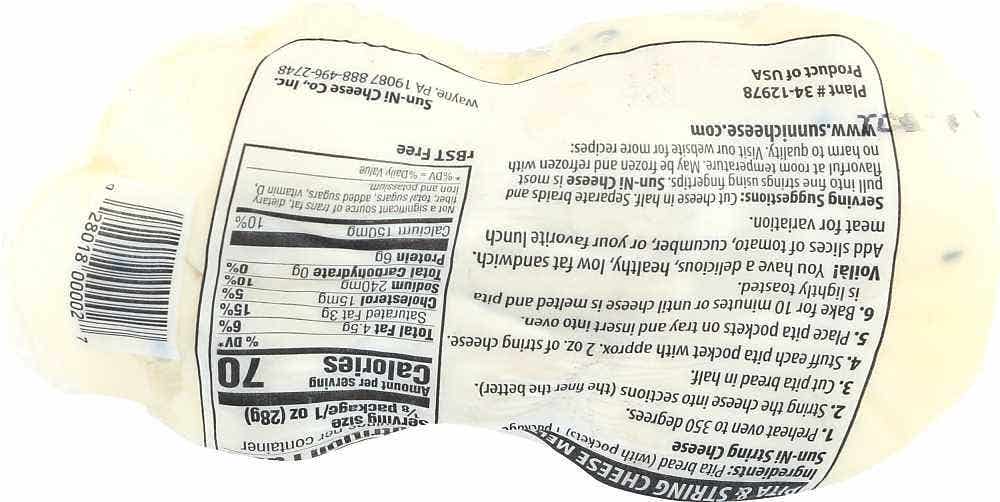 PITA & STRING CHEESE
Ingredients: Pita bread (with pockets) 1 package
Sun-Ni String Cheese
1. Preheat oven to 350 degrees.
2. String the cheese into sections (the finer the better).
3. Cut pita bread in half.
4. Stuff each pita pocket with approx. 2 oz. of string cheese.
5. Place pita pockets on tray and insert into oven.
6. Bake for 10 minutes or until cheese is melted and pita
is lightly toasted.
Voilà! You have a delicious, healthy, low fat sandwich.
Add slices of tomato, cucumber, or your favorite lunch
meat for variation.
Serving Suggestions: Cut cheese in half. Separate braids and
pull into fine strings using fingertips. Sun-Ni Cheese is most
flavorful at room temperature. May be frozen and refrozen with
no harm to quality. Visit our website for more recipes:
www.sunnicheese.com
Plant # 34-12978
Product of USA
per container
Serving size
⅛ package/1 oz (28g)
Amount per serving
Calories 70
% DV*
Total Fat 4.5g 6%
Saturated Fat 3g 15%
Cholesterol 15mg 5%
Sodium 240mg 10%
Total Carbohydrate 0g 0%
Protein 6g
Calcium 150mg 10%
Not a significant source of trans fat, dietary
fiber, total sugars, added sugars, vitamin D,
iron and potassium
*%DV = %Daily Value
rBST Free
Sun-Ni Cheese Co., Inc.
Wayne, PA 19087 888-496-2748
0 28018 00002 7